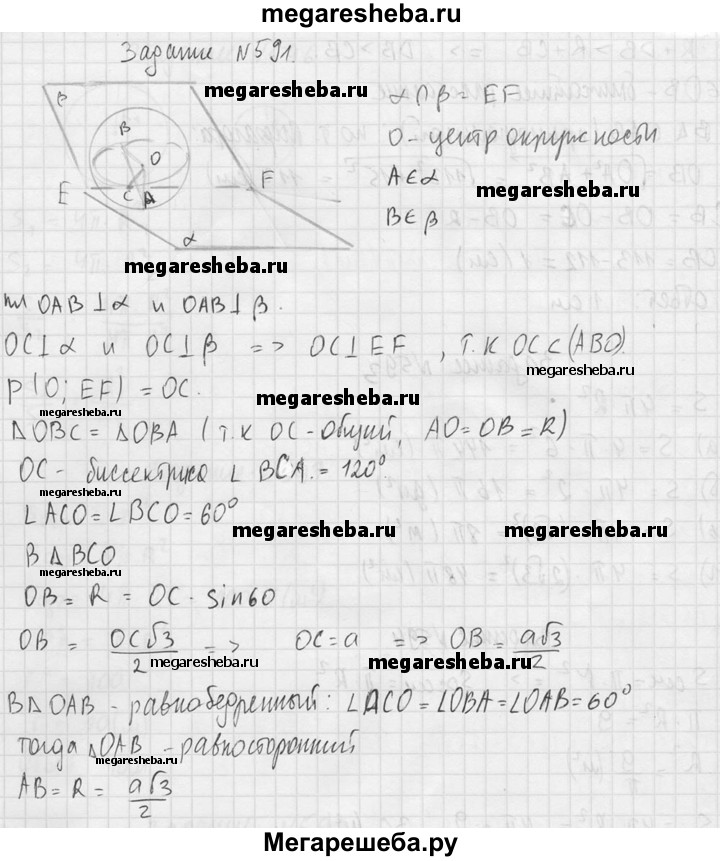 megaresheba.ru
Задание №591.
megaresheba.ru
β
B
O
E
C
A
F
α
α∩β = EF
O - центр окружности
A∈α
megaresheba.ru
B∈β
megaresheba.ru
пл OAB⊥α и OAB⊥β.
OC⊥α и OC⊥β => OC⊥EF, т.к OC⊂(ABO).
megaresheba.ru
P(O; EF) = OC.
megaresheba.ru
megaresheba.ru
ΔOBC = ΔOBA (т.к OC - общий, AO = OB = R)
OC - биссектриса ∠ BCA. = 120°
megaresheba.ru
∠ACO = ∠BCO = 60°
megaresheba.ru
megaresheba.ru
В ΔBCO
megaresheba.ru
OB = R = OC · sin60
OB = OC√3/2 => OC = a => OB = a√3/2
megaresheba.ru
megaresheba.ru
ВΔOAB - равнобедренный: ∠ACO = ∠OBA = ∠OAB = 60°
тогда ΔOAB - равносторонний
AB = R = a√3/2
Мегарешеба.ру